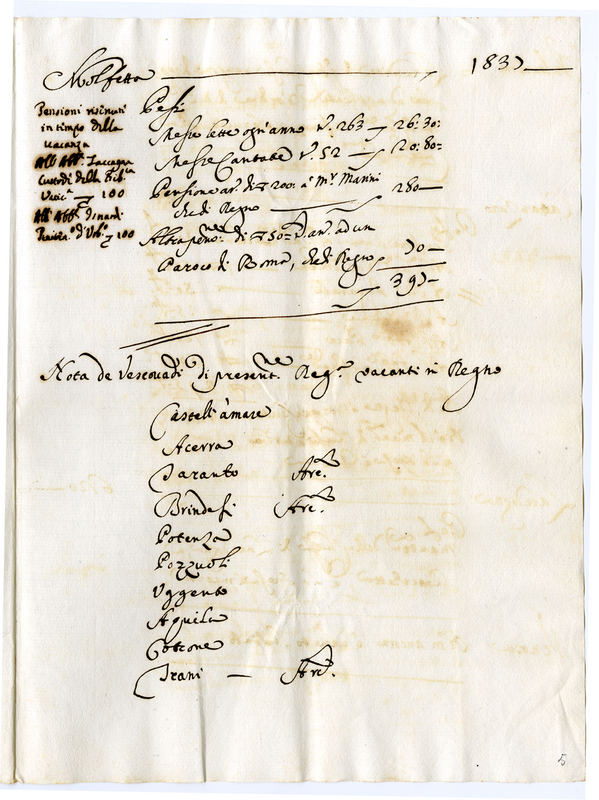 Molfetta 1837
Pensioni risinuti
in tempo della
vacanza
All Abb.
Custodi della
100
All Abb.
100
Pesi
Messe lette ogn'anno n.º 263 26:30:
Messe Cantate n.º 52 20:80:
Pensione an. di 200: à Mr. Marini
che di Regno 280
Altra pen.ne di 50 an. ad un
Paroco di Roma, che di Regno 70
397
Nota de Vescovadi di present.ne Reg.a vacanti in Regno
Castell'àmare
Acerra
Taranto Arc.
Brindesi Arc.
Potenza
Pozzuoli
Uggento
Aquila
Cotrone
Trani — Arc.
5